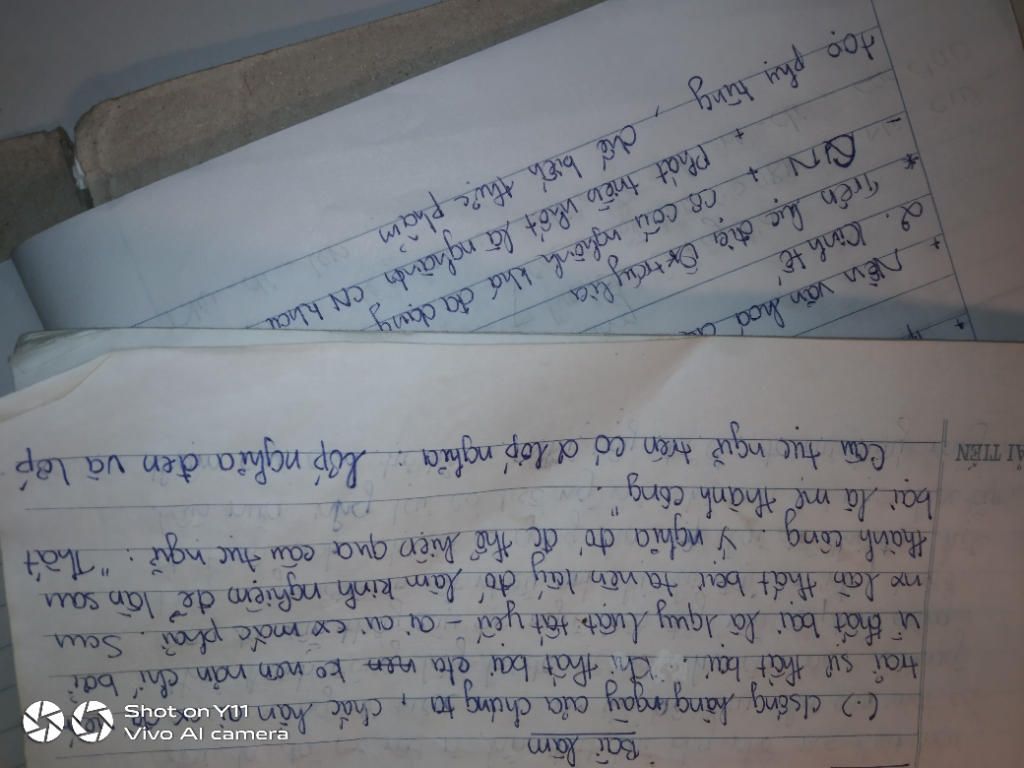 Bài làm
(.) cuộc sống hằng ngày của chúng ta, chắc hẳn ai cx
trải sự thất bại. Khi thất bại cta nên ko nên nản chí bởi
vì thất bại là quy luật tất yếu – ai ai cx mắc phải. Sau
mỗi lần thất bại ta nên lấy đó làm kinh nghiệm để lần sau
thành công. Ý nghĩa đó đc thể hiện qua câu tục ngữ: "Thất
bại là mẹ thành công".
Câu tục ngữ trên có 2 lớp nghĩa: lớp nghĩa đen và lớp
ẢI TIẾN
+
+ Nền văn hoá
2. Kinh tế
* Trên lục địa Ôxtrâylia
- CN + Cơ cấu nghành khá đa dạng
+ Phát triển nhất là nghành CN khai
chế biến thực phẩm
400 phụ tùng,
Shot on Y11
Vivo AI camera